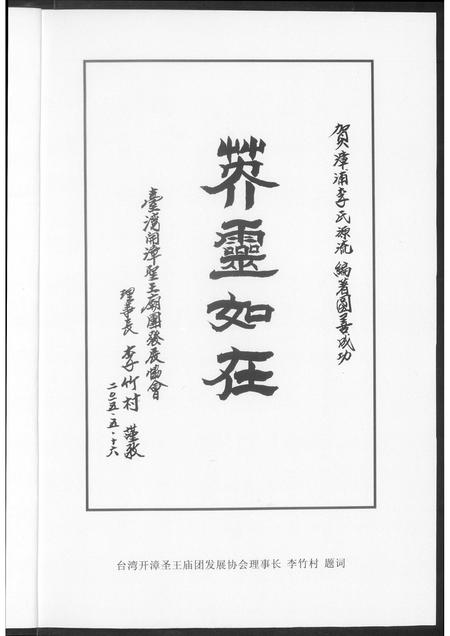 賀漳浦李氏源流 編著圓善成功
莽靈如在
臺灣開漳聖王廟團發展協會
理事長 李竹村 謹致
二〇一五·五·十六
台湾开漳圣王庙团发展协会理事长 李竹村 题词